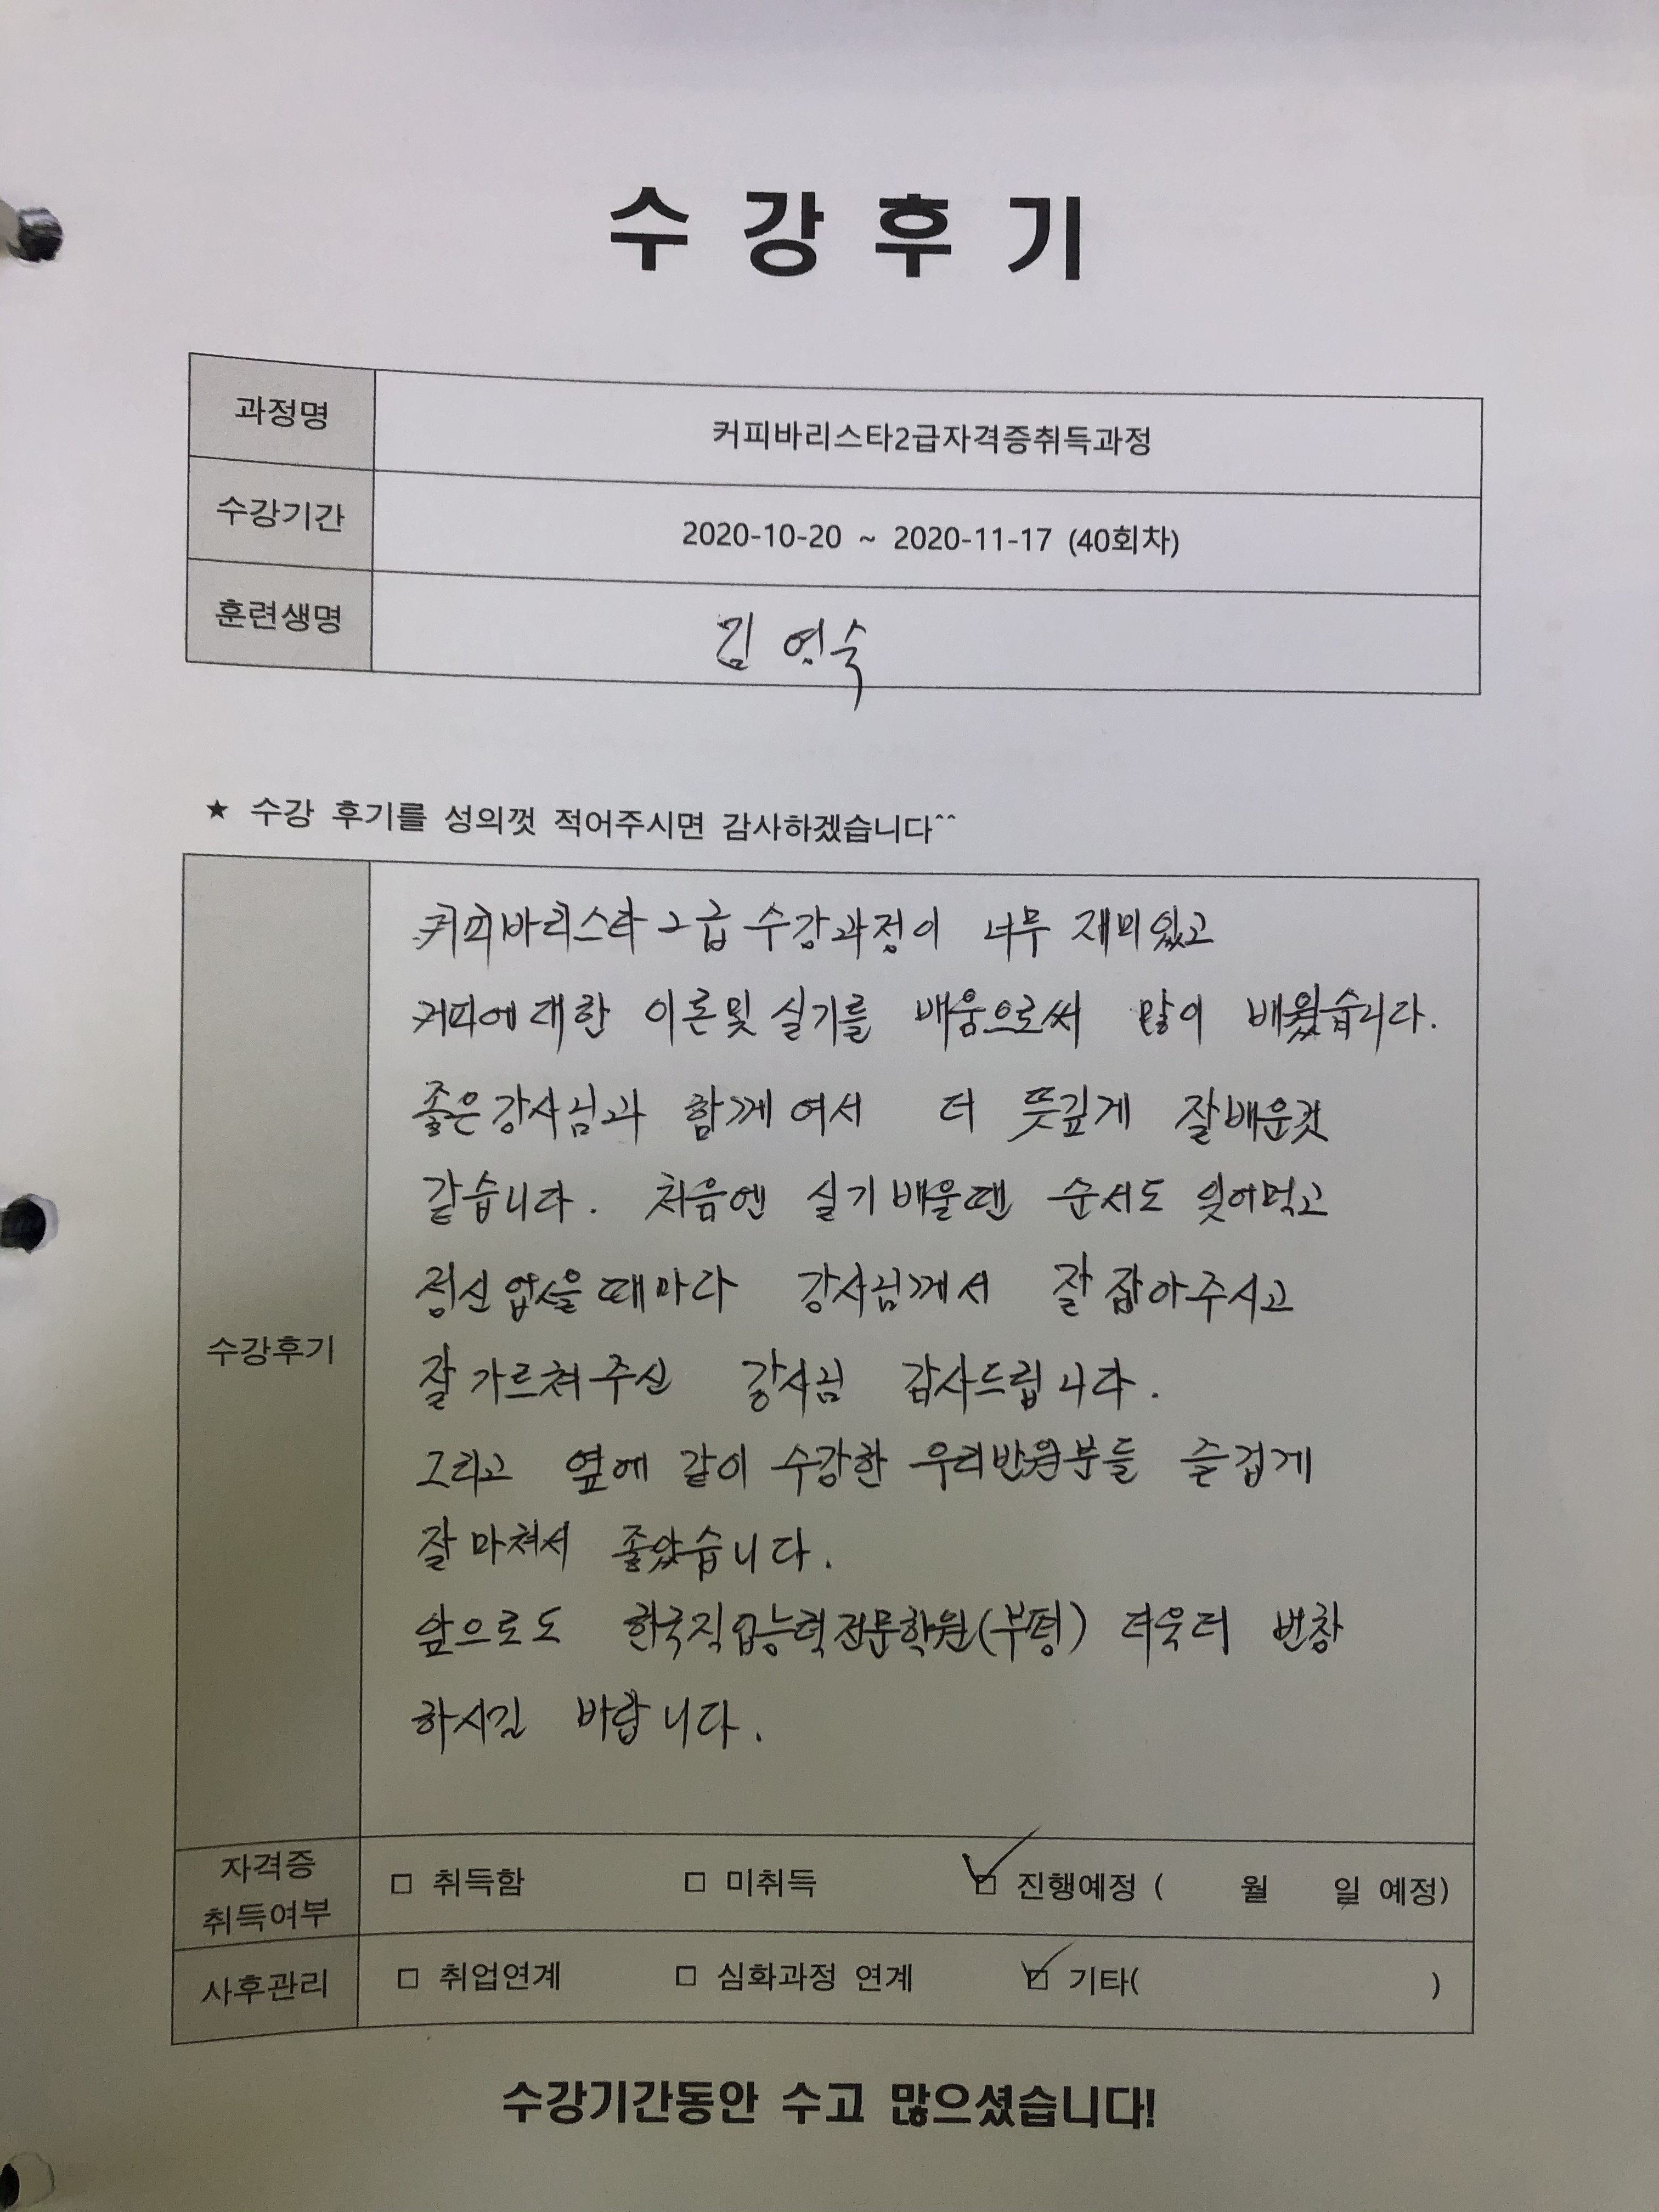 수 강 후 기
과정명 커피바리스타2급자격증취득과정
수강기간 2020-10-20 ~ 2020-11-17 (40회차)
훈련생명 김영숙
★ 수강 후기를 성의껏 적어주시면 감사하겠습니다^^
수강후기
커피바리스타 2급 수강과정이 너무 재미있고
커피에 대한 이론및 실기를 배움으로써 많이 배웠습니다.
좋은강사님과 함께여서 더 뜻깊게 잘배운것
같습니다. 처음엔 실기 배울땐 순서도 잊어먹고
정신없을때마다 강사님께서 잘 잡아주시고
잘 가르쳐주신 강사님 감사드립니다.
그리고 옆에 같이 수강한 우리반원분들 즐겁게
잘 마쳐서 좋았습니다.
앞으로도 한국직업능력전문학원(부평) 더욱더 번창
하시길 바랍니다.
자격증
취득여부 □ 취득함 □ 미취득 ☑ 진행예정 ( 월 일 예정)
사후관리 □ 취업연계 □ 심화과정 연계 ☑ 기타( )
수강기간동안 수고 많으셨습니다!